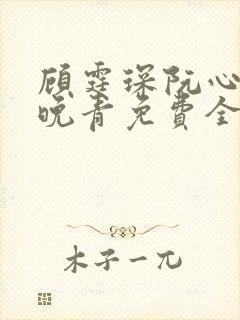 顾霆琛阮心
晚青免费全
木子一兀